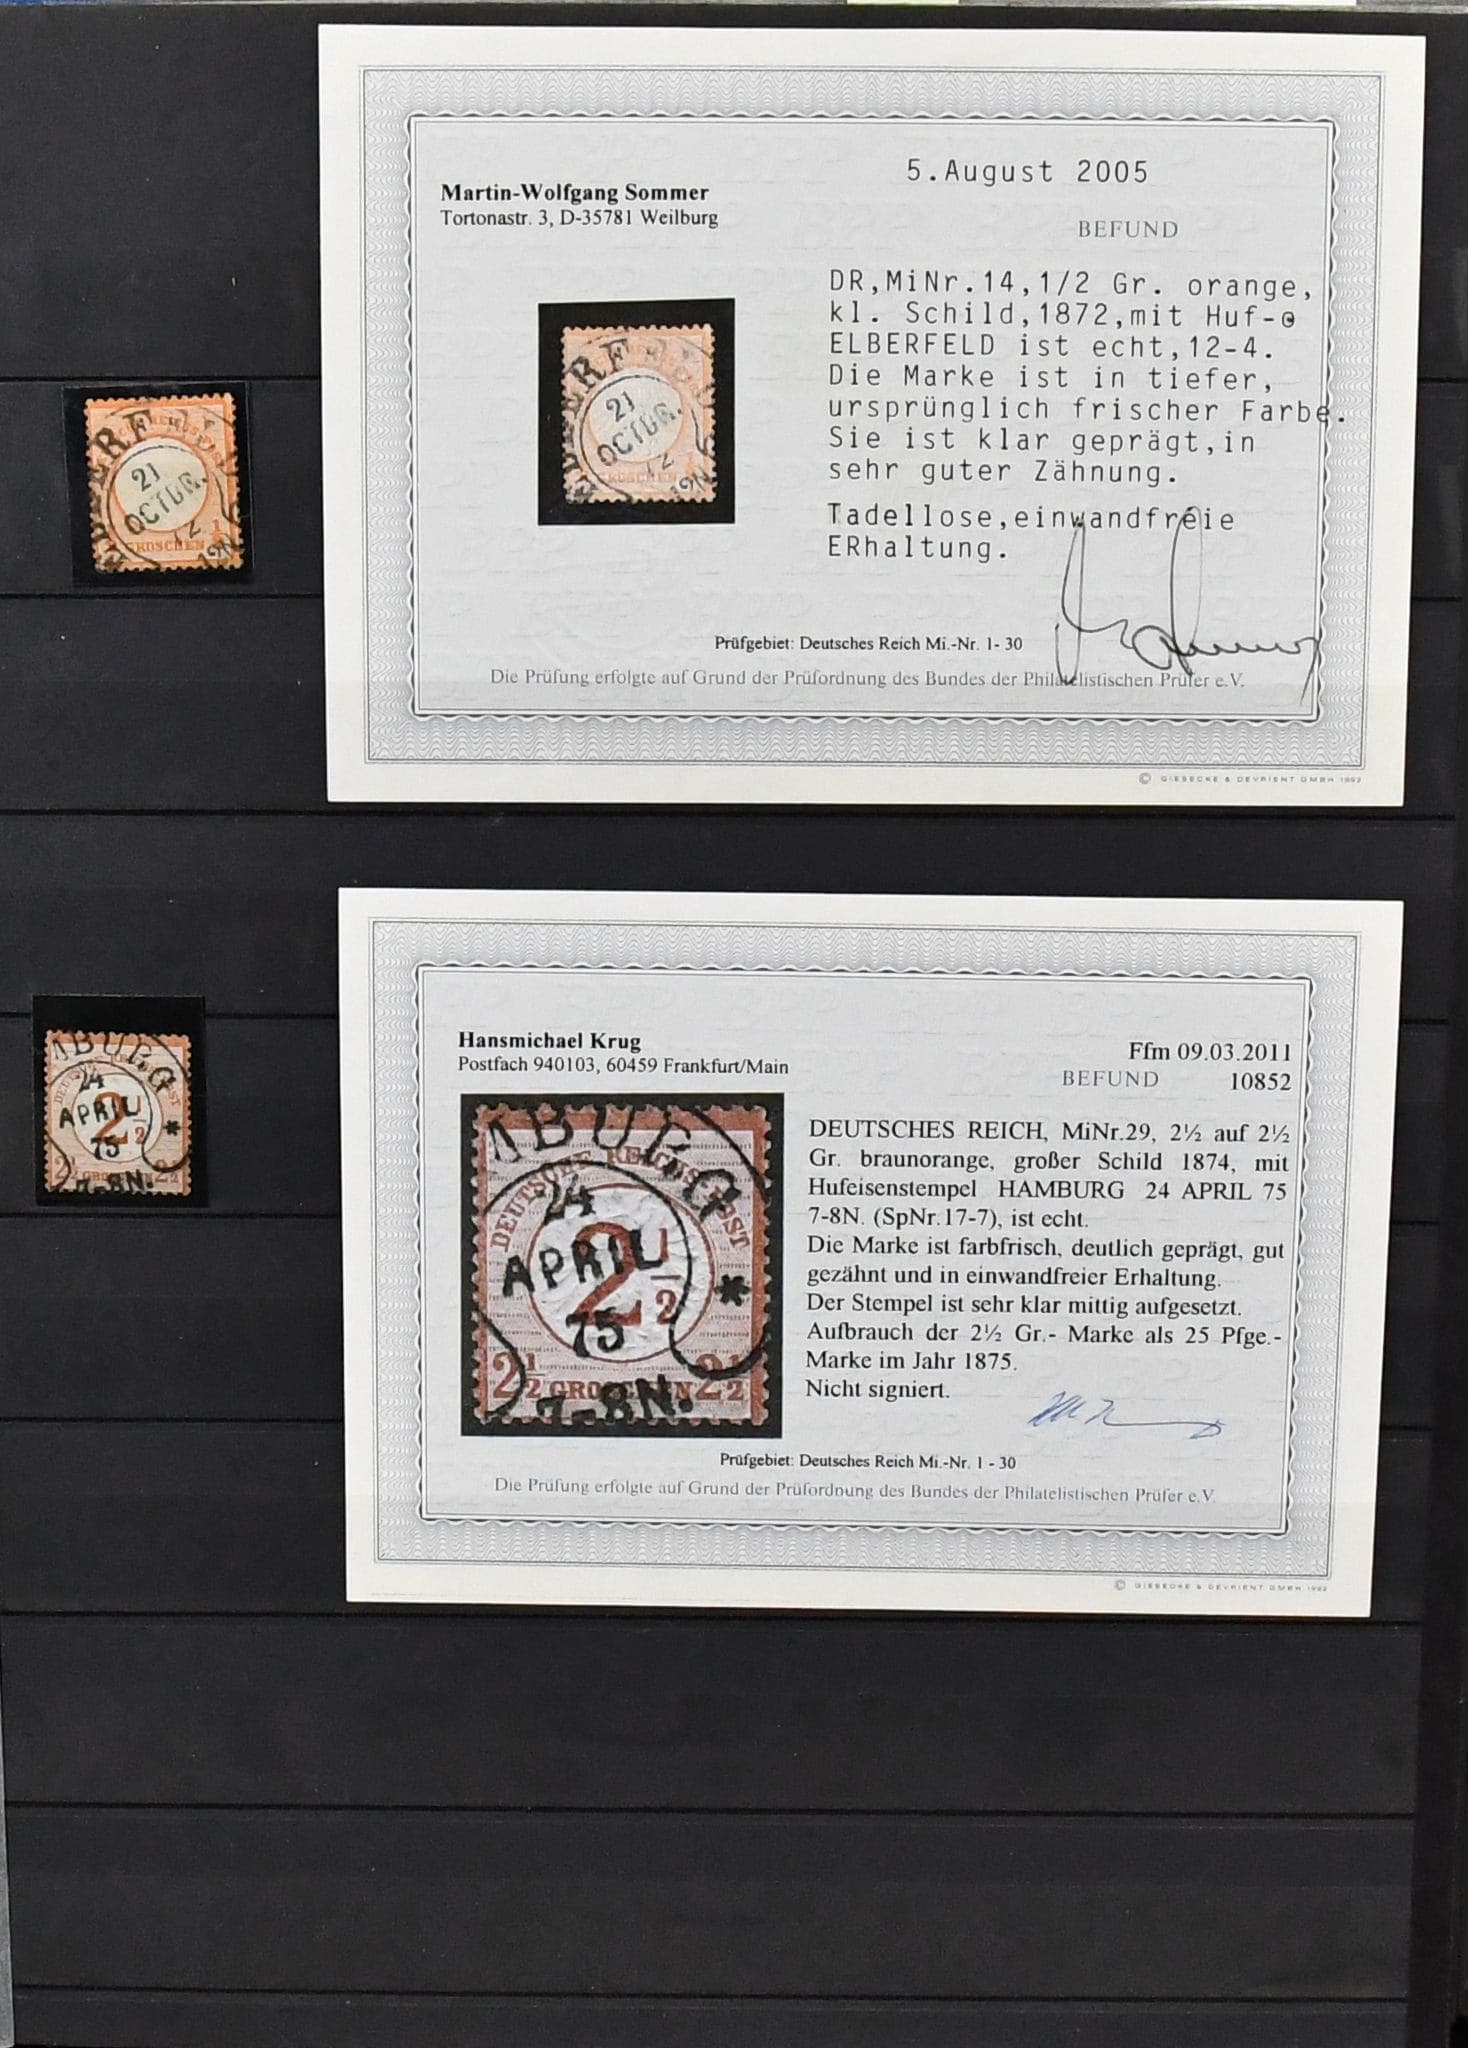 5.August 2005
Martin-Wolfgang Sommer
Tortonastr. 3, D-35781 Weilburg
BEFUND
DR,MiNr.14,1/2 Gr. orange,
kl. Schild,1872,mit Huf-
ELBERFELD ist echt,12-4.
Die Marke ist in tiefer,
ursprünglich frischer Farbe.
Sie ist klar geprägt,in
sehr guter Zähnung.
Tadellose,einwandfreie
ERhaltung.
Prüfgebiet: Deutsches Reich Mi.-Nr. 1- 30
Die Prüfung erfolgte auf Grund der Prüfordnung des Bundes der Philatelistischen Prüfer e.V.
© GIESECKE & DEVRIENT GMBH 1992
21
OCTBR.
72
GROSCHEN
21
OCTBR.
72
GROSCHEN
Hansmichael Krug
Postfach 940103, 60459 Frankfurt/Main
Ffm 09.03.2011
BEFUND 10852
DEUTSCHES REICH, MiNr.29, 2½ auf 2½
Gr. braunorange, großer Schild 1874, mit
Hufeisenstempel HAMBURG 24 APRIL 75
7-8N. (SpNr.17-7), ist echt.
Die Marke ist farbfrisch, deutlich geprägt, gut
gezähnt und in einwandfreier Erhaltung.
Der Stempel ist sehr klar mittig aufgesetzt.
Aufbrauch der 2½ Gr.- Marke als 25 Pfge.-
Marke im Jahr 1875.
Nicht signiert.
Prüfgebiet: Deutsches Reich Mi.-Nr. 1 - 30
Die Prüfung erfolgte auf Grund der Prüfordnung des Bundes der Philatelistischen Prüfer e.V.
© GIESECKE & DEVRIENT GMBH 1992
MBURG
DEUTSCHE REICHSPOST
24
APRIL
75
2½
2½ GROSCHEN 2½
7-8N.
MBURG
24
APRIL
75
2½
2½ GROSCHEN 2½
7-8N.